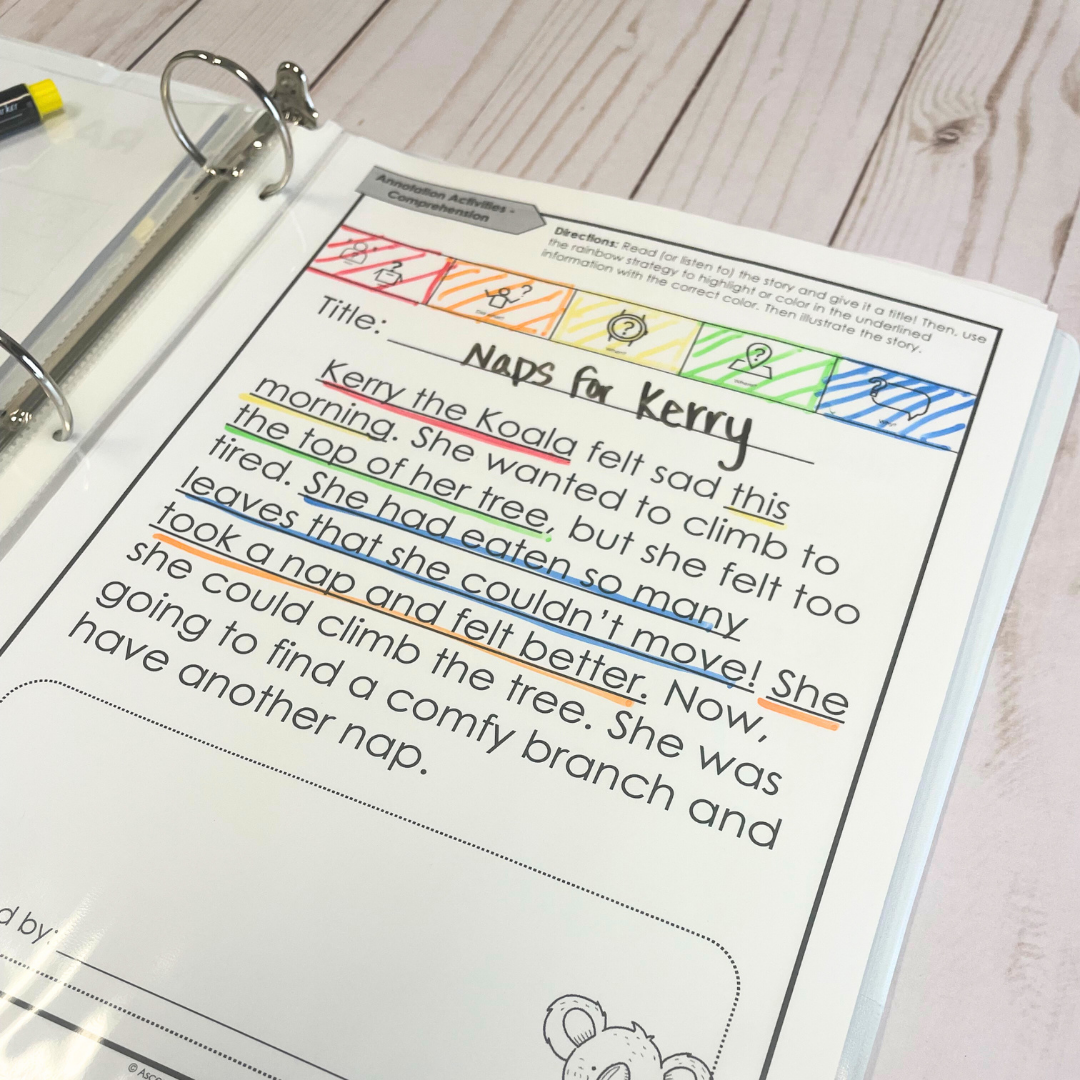 Annotation Activities -
Comprehension
Directions: Read (or listen to) the story and give it a title! Then, use
the rainbow strategy to highlight or color in the underlined
information with the correct color. Then illustrate the story.
Title: Naps for Kerry
Kerry the Koala felt sad this
morning. She wanted to climb to
the top of her tree, but she felt too
tired. She had eaten so many
leaves that she couldn't move! She
took a nap and felt better. Now,
she could climb the tree. She was
going to find a comfy branch and
have another nap.
d by: